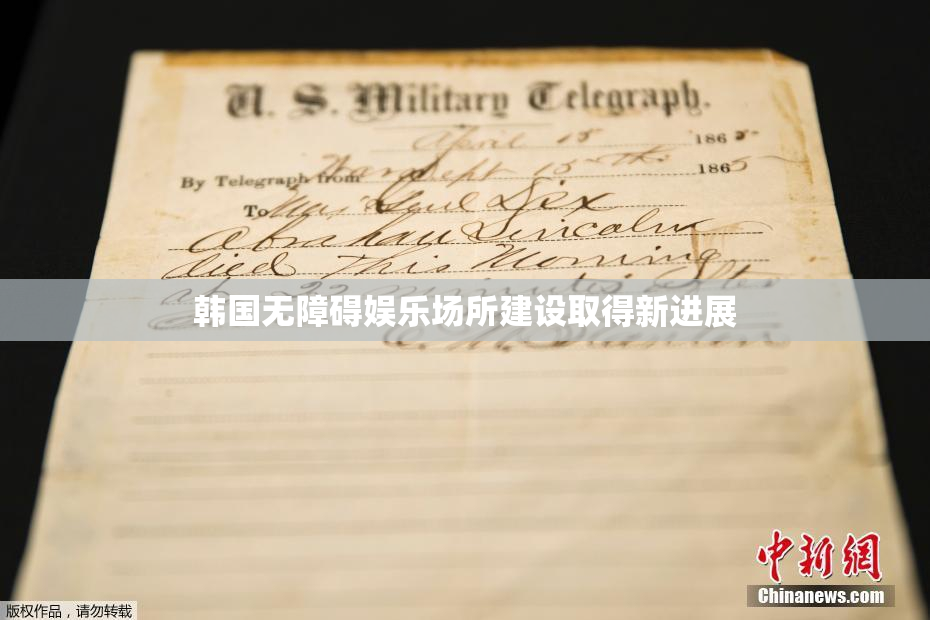 U. S. Military Telegraph.
April 15 1865
By Telegraph from War Dept 15th 1865
To Maj Genl Dix
Abraham Lincoln
died This Morning
at 22 minutes after
韩国无障碍娱乐场所建设取得新进展
中新网
Chinanews.com
版权作品，请勿转载